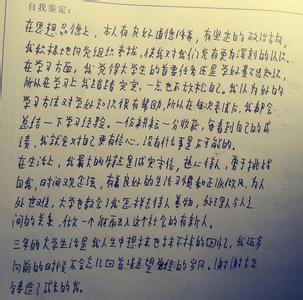 自我鉴定:
在思想品德上,本人有良好道德修养,有坚定的政治方向,
我积极地向党组织靠拢,使我对我们党有更为深刻的认识。
在学习方面,我觉得大学生的首要任务还是学好基本知识,
所以在学习上我踏踏实实,一点也不放松。我认为好的
学习方法对学好知识很有帮助,所以在每次考试后,我都会
总结一下学习经验。一份耕耘一分收获,每看到自己的成
绩,我就会对自己更有信心,没有什么事是不可能的。
在生活上,我最大的特点是诚实守信,热心待人,勇于挑战
自我,时间观念强,有着良好的生活习惯和正派作风。为人
处世
大学也教会了我怎样去待人
间的关系,做一个能融入这个社会的有新人。
三年的大学生活是我人生中想抹也抹不掉的回忆,我迈步
向前的时候不会忘记回首
的岁月。谢谢大学
成长的我。